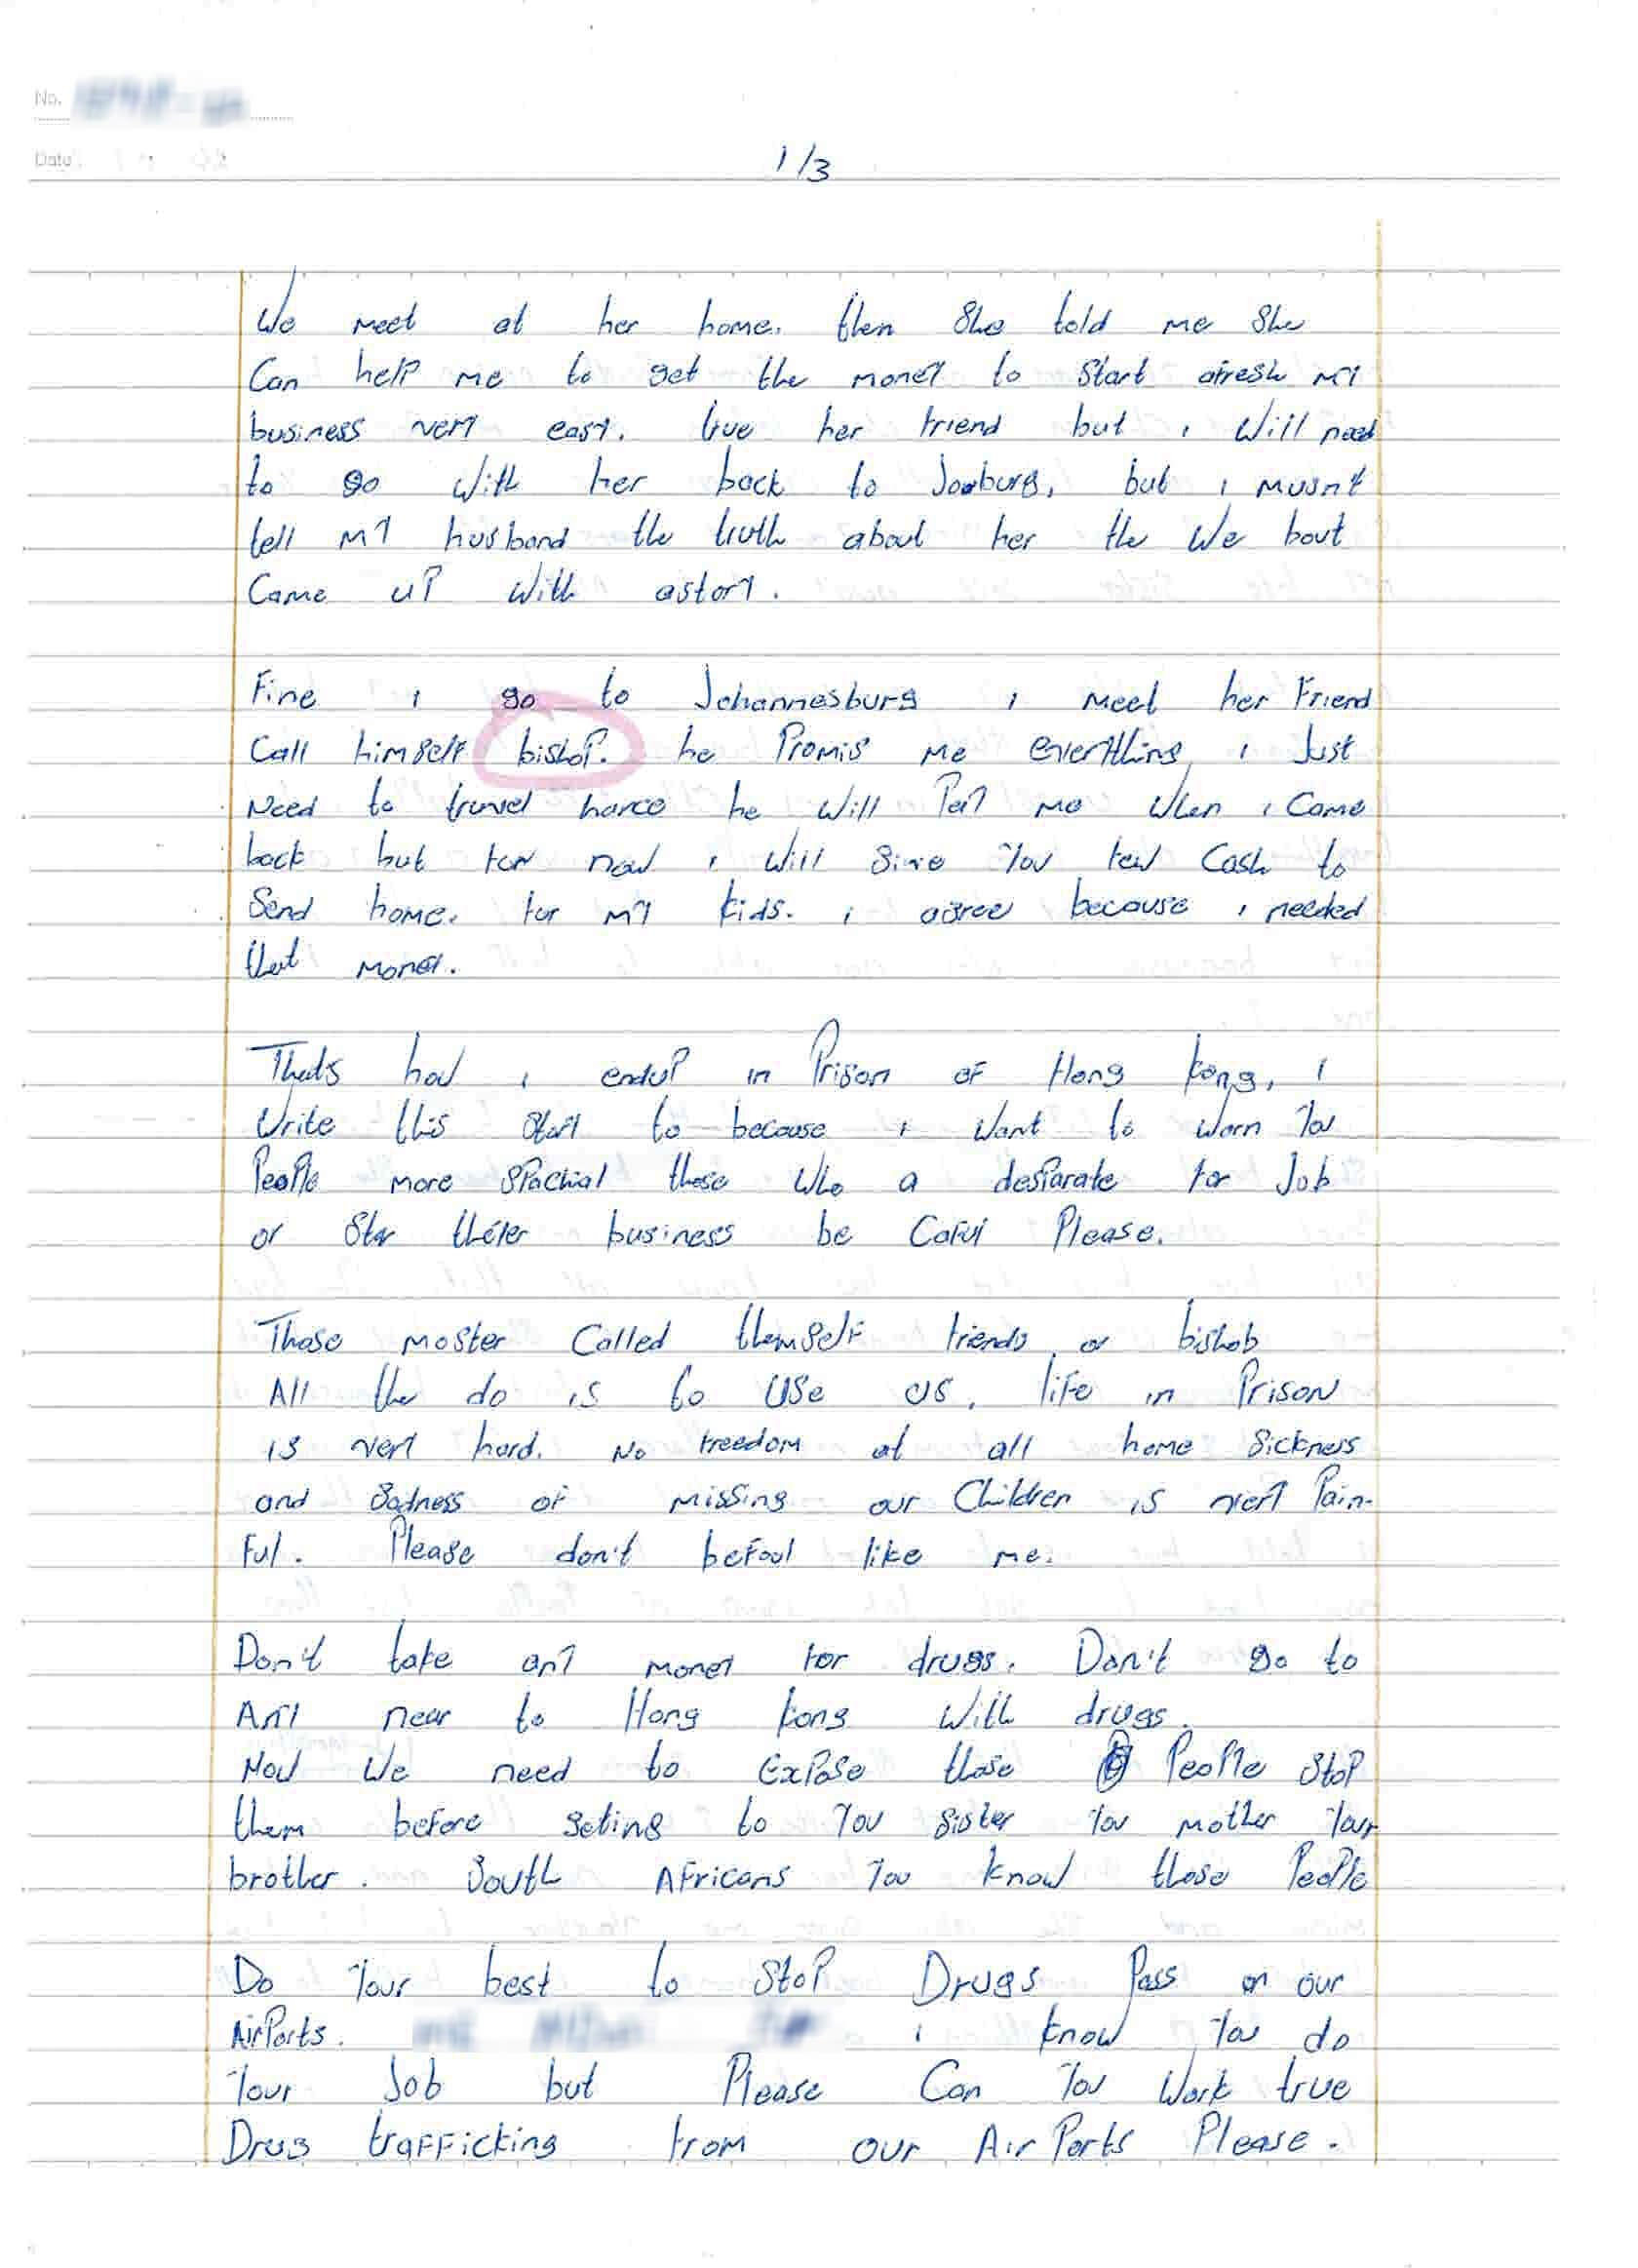 No.
Date
1/3
We meet at her home. then She told me She
Can help me to get the money to Start afresh my
business very easy. true her friend but i Will need
to go With her back to Joxburg, but i musnt
tell my husband the truth about her the We bout
Came up With astory.
Fine i go to Johannesburg i meet her Friend
Call himself bishop. he Promis me everything, i Just
Need to travel harce he Will Pay me When i Came
back but for now i Will give You few Cash to
Send home. for my kids. i agree because i needed
that money.
Thats how i endup in Prison of Hong Kong, i
Write this story to because i Want to Warn You
People more Spachial those Who a desparate for Job
or Star theier business be Carful Please.
Those moster Called themself friends or bishob
All the do is to Use us. life in Prison
is very hard. No freedom at all home Sickness
and Sadness of missing our Children is very Pain-
Ful. Please don't befool like me.
Don't take any money for drugs. Don't go to
Any near to Hong Kong With drugs.
Now We need to Expose those People Stop
them before geting to You Sister You mother Your
brother. South Africans You know those People
Do Your best to Stop Drugs Pass on our
AirPorts. i know You do
Your Job but Please Can You Work true
Drug trafficking from our AirPorts Please.